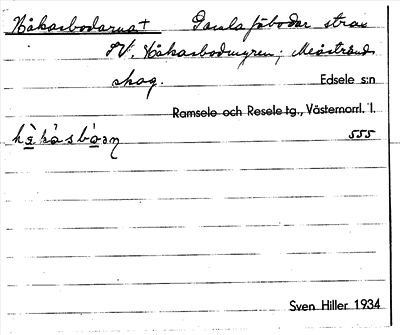 Håkasbodarna† Gamla fäbodar strax
SV. Håkasbodmyren; Meåstrands
skog. Edsele s:n
Ramsele och Resele tg., Västernorrl. l.
555
Sven Hiller 1934